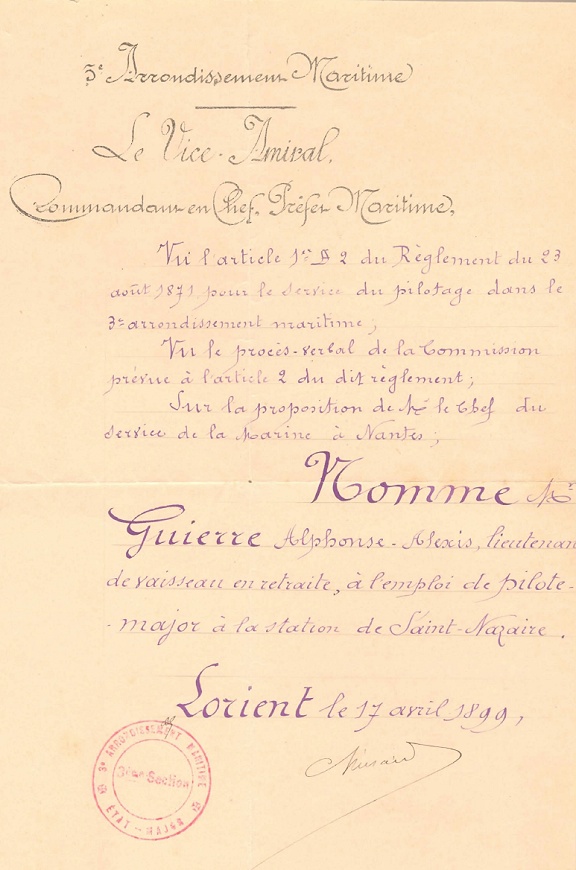 3e Arrondissement Maritime
Le Vice-Amiral,
Commandant en Chef, Préfet Maritime,
Vu l'article 1er § 2 du Règlement du 23
août 1871 pour le service du pilotage dans le
3e arrondissement maritime ;
Vu le procès-verbal de la Commission
prévue à l'article 2 du dit règlement ;
Sur la proposition de Mr le Chef du
service de la Marine à Nantes ;
Nomme Mr
Guierre Alphonse-Alexis, lieutenan
de vaisseau en retraite, à l'emploi de pilote-
-major à la station de Saint-Nazaire.
Lorient le 17 avril 1899,
3e ARRONDISSEMENT MARITIME
3ème Section
ÉTAT-MAJOR